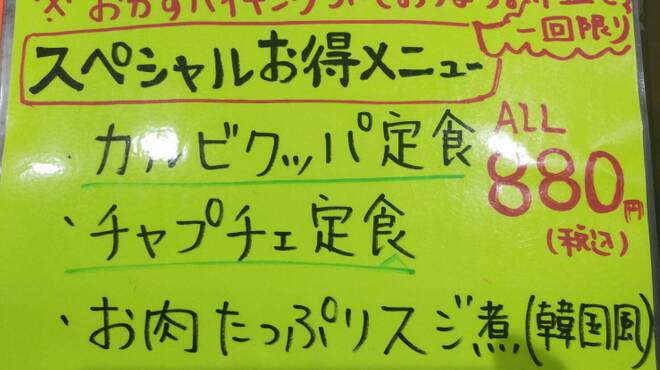 ※おかずバイキング
一回限り
スペシャルお得メニュー
カルビクッパ定食
ALL
880円
(税込)
・チャプチェ定食
・お肉たっぷりスジ煮(韓国風)